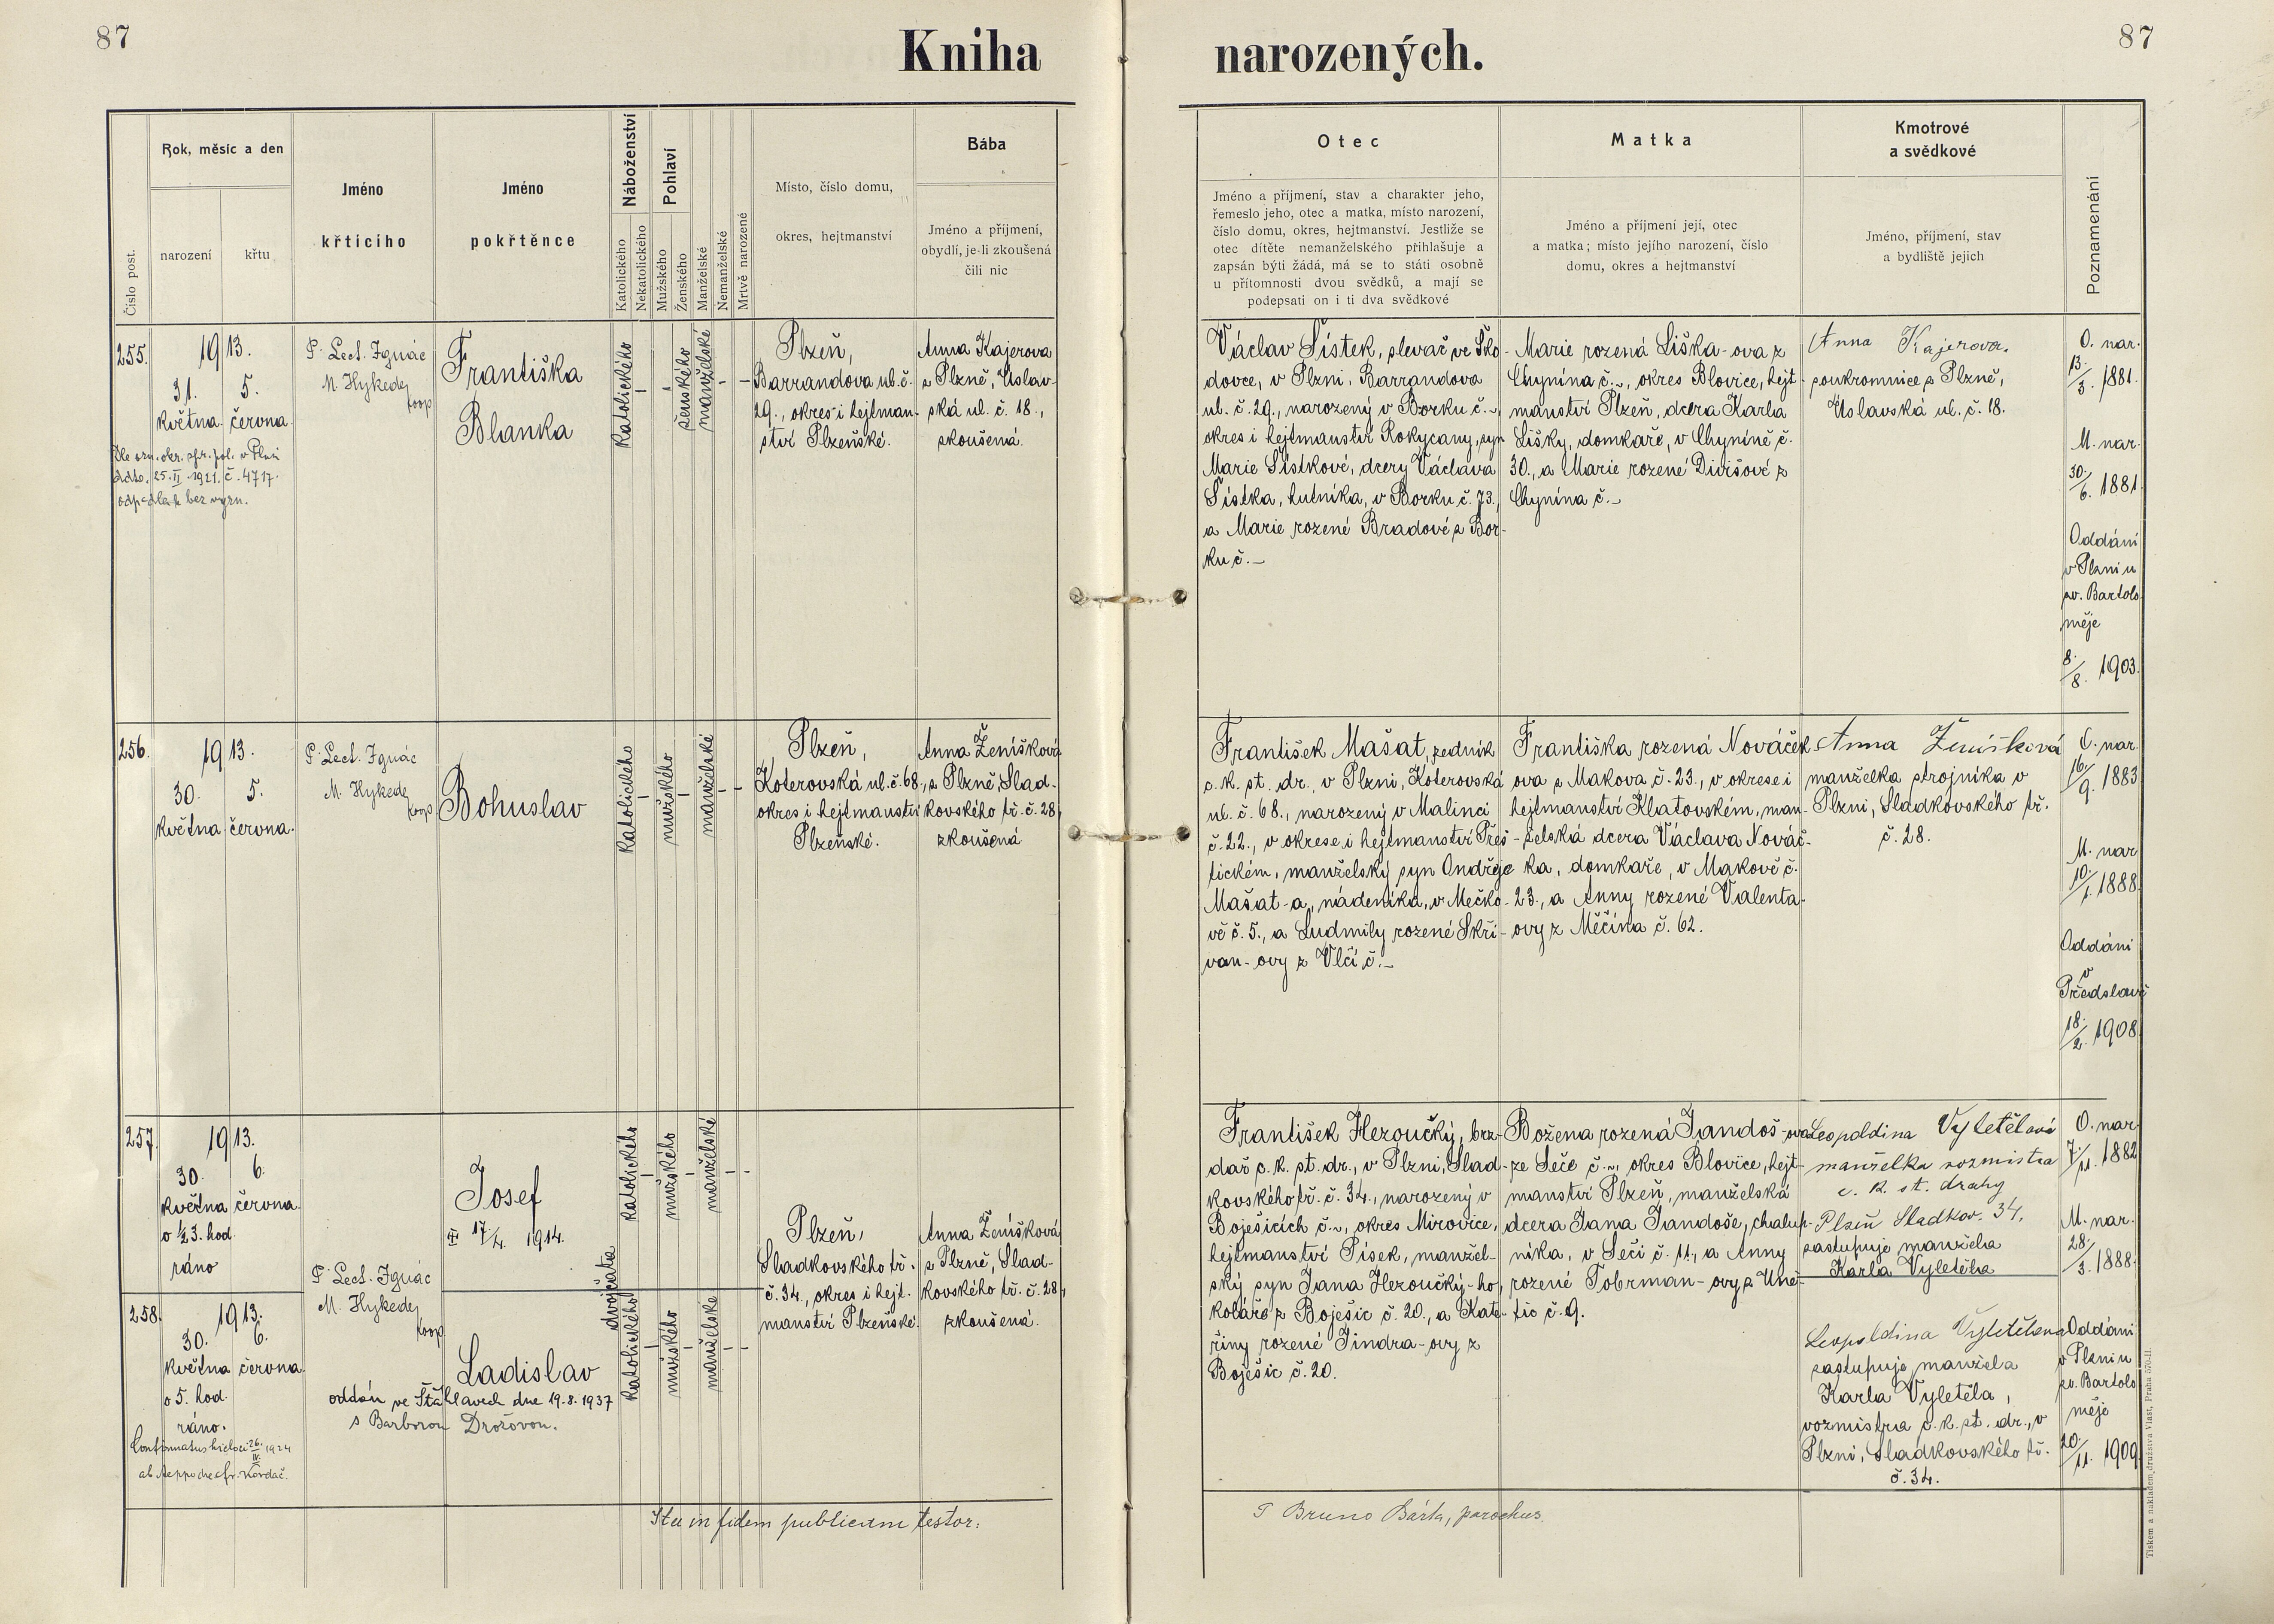 87
Kniha narozených.
87
Číslo post.
Rok, měsíc a den
narození
křtu
Jméno
křticího
Jméno
pokřtěnce
Náboženství
Katolického
Nekatolického
Pohlaví
Mužského
Ženského
Manželské
Nemanželské
Mrtvě narozené
Místo, číslo domu,
okres, hejtmanství
Bába
Jméno a příjmení,
obydlí, je-li zkoušená
čili nic
Otec
Jméno a příjmení, stav a charakter jeho,
řemeslo jeho, otec a matka, místo narození,
číslo domu, okres, hejtmanství. Jestliže se
otec dítěte nemanželského přihlašuje a
zapsán býti žádá, má se to státi osobně
u přítomnosti dvou svědků, a mají se
podepsati on i ti dva svědkové
Matka
Jméno a příjmení její, otec
a matka; místo jejího narození, číslo
domu, okres a hejtmanství
Kmotrové
a svědkové
Jméno, příjmení, stav
a bydliště jejich
Poznamenání
255.
1913.
31. 5.
května června
Dle ozn. okr. spr. pol. v Plzni
ddto. 25.II.1921. č. 4717.
odpadla k bez vyzn.
P. Lect. Ignác
M. Hykede
koop
Františka
Blanka
Katolického
ženského
manželské
Plzeň,
Barrandova ul. č.
29., okres i hejtman-
ství Plzeňské.
Anna Kajerova
z Plzně, Úslav-
ská ul. č. 18.,
zkoušená.
Václav Šístek, slevač ve Ško-
dovce, v Plzni, Barrandova
ul. č. 29., narozený v Borku č. -,
okres i hejtmanství Rokycany, syn
Marie Šístkové, dcery Václava
Šístka, hutníka, v Borku č. 73.,
a Marie rozené Bradové z Bor-
ku č. -
Marie rozená Liška-ova z
Chynína č. -, okres Blovice, hejt-
manství Plzeň, dcera Karla
Lišky, domkaře, v Chyníně č.
30., a Marie rozené Divišové z
Chynína č. -
Anna Kajerova.
soukromnice z Plzně,
Úslavská ul. č. 18.
O. nar.
13./3. 1881.
M. nar.
30./6. 1881.
Oddáni
v Plzni u
sv. Bartolo
měje
8./8. 1903.
256.
1913.
30. 5.
května června.
P. Lect. Ignác
M. Hykede
koop
Bohuslav
Katolického
mužského
manželské
Plzeň,
Koterovská ul. č. 68.,
okres i hejtmanství
Plzeňské.
Anna Ženíšková
z Plzně, Slad-
kovského tř. č. 28,
zkoušená
František Mašat, zedník
c. k. st. dr., v Plzni, Koterovská
ul. č. 68., narozený v Malinci
č. 22., v okrese i hejtmanství Přeš-
tickém, manželský syn Ondřeje
Mašat-a, nádeníka, v Mečko-
vě č. 5., a Ludmily rozené Skři-
van-ovy z Vlčí č. -
Františka rozená Nováček
ova z Makova č. 23., v okrese i
hejtmanství Klatovském, man-
želská dcera Václava Nováč-
ka, domkaře, v Makově č.
23., a Anny rozené Valenta-
ovy z Měčína č. 62.
Anna Ženíšková
manželka strojníka v
Plzni, Sladkovského tř.
č. 28.
O. nar.
16./9. 1883
M. nar
10./1. 1888.
Oddáni
v
Předslavi
18./2. 1908.
257.
1913.
30. 6.
května června.
o ½3. hod.
ráno
Josef
III 17/4. 1914.
Katolického
mužského
manželské
dvojčata
P. Lect. Ignác
M. Hykede
koop
Plzeň,
Sladkovského tř.
č. 34., okres i hejt.
manství Plzeňské.
Anna Ženíšková
z Plzně, Slad-
kovského tř. č. 28,
zkoušená.
František Hezoučký, brz-
dař c. k. st. dr., v Plzni, Slad-
kovského tř. č. 34., narozený v
Boješicích č. -, okres Mirovice,
hejtmanství Písek, manžel-
ský syn Jana Hezoučký-ho,
koláře z Boješic č. 20., a Kate-
řiny rozené Jindra-ovy z
Boješic č. 20.
Božena rozená Jandoš-ova
ze Seče č. -, okres Blovice, hejt-
manství Plzeň, manželská
dcera Jana Jandoše, chalup-
níka, v Seči č. 11., a Anny
rozené Toberman-ovy z Uně-
tic č. 9.
Leopoldina Vyletělová
manželka vozmistra
c. k. st. drahy
Plzeň Sladkov. 34.
zastupuje manžela
Karla Vyletěla
O. nar
7./11. 1882
M. nar.
28./3. 1888.
258.
1913.
30. 6.
května června.
o 5. hod.
ráno.
Confirmatus hic loci 26./IV. 1924
ab Aeppo de fr. Kordač.
Ladislav
oddán ve Šťáhlavech dne 19.8.1937
s Barborou Drožovou.
Katolického
mužského
manželské
Leopoldina Vyletělova
zastupuje manžela
Karla Vyletěla,
vozmistra c. k. st. dr., v
Plzni, Sladkovského tř.
č. 34.
Oddáni
v Plzni u
sv. Bartolo
měje
20./11. 1909.
Ita in fidem publicam testor:
P Bruno Bárta, parochus.
Tiskem a nákladem družstva Vlast, Praha 570-II.